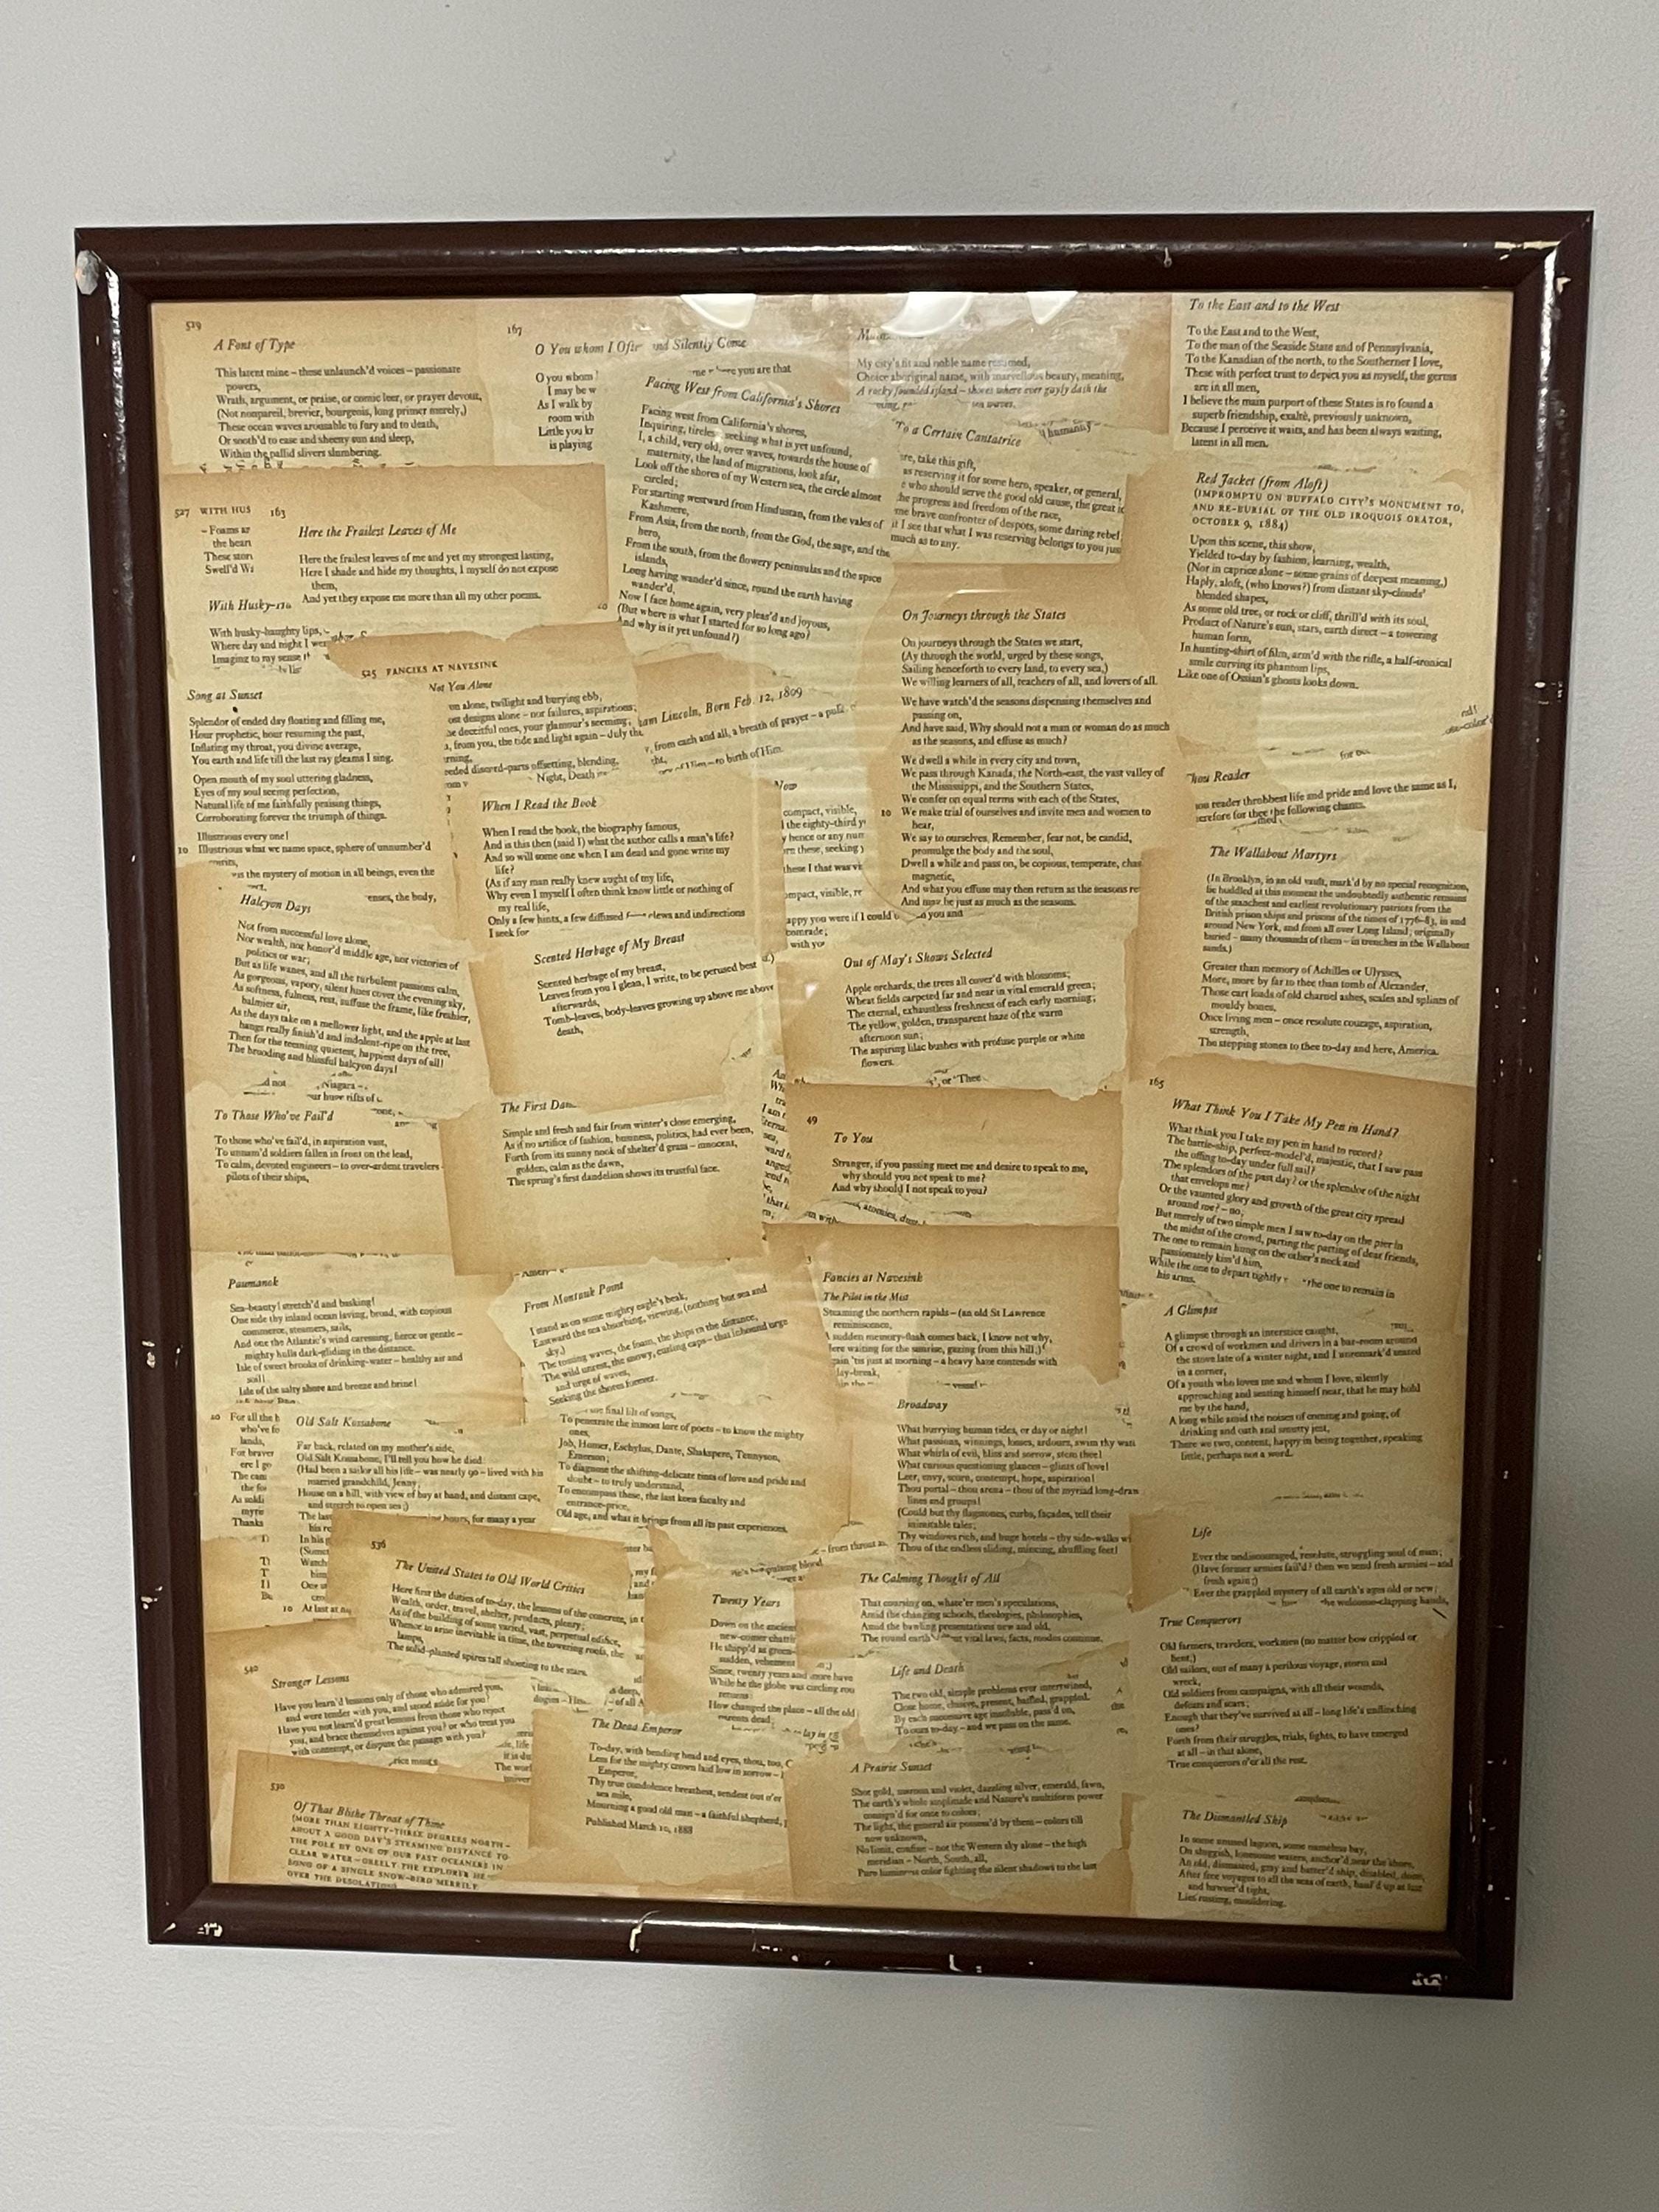 529
A Font of Type
This latent mine – these unlaunch'd voices – passionate
powers,
Wrath, argument, or praise, or comic leer, or prayer devout,
(Not nonpareil, brevier, bourgeois, long primer merely,)
These ocean waves arousable to fury and to death,
Or sooth'd to ease and sheeny sun and sleep,
Within the pallid slivers slumbering.
527 WITH HUS
– Foams ar
the heart
These stori
Swell'd
163
Here the Frailest Leaves of Me
Here the frailest leaves of me and yet my strongest lasting,
Here I shade and hide my thoughts, I myself do not expose
them,
And yet they expose me more than all my other poems.
With Husky
With husky-haughty lips,
Where day and night I
Imaging to my sense
Song at Sunset
Splendor of ended day floating and filling me,
Hour prophetic, hour resuming the past,
Inflating my throat, you divine average,
You earth and life till the last ray gleams I sing.
Open mouth of my soul uttering gladness,
Eyes of my soul seeing perfection,
Natural life of me faithfully praising things,
Corroborating forever the triumph of things.
Illustrious every one!
10 Illustrious what we name space, sphere of unnumber'd
the mystery of motion in all beings, even the
enses, the body,
Halcyon Days
Not from successful love alone,
Nor wealth, nor honor'd middle age, nor victories of
politics or war;
But as life wanes, and all the turbulent passions calm,
As gorgeous, vapory, silent hues cover the evening sky,
As softness, fulness, rest, suffuse the frame, like freshier,
balmier air,
As the days take on a mellower light, and the apple at last
hangs really finish'd and indolent-ripe on the tree,
Then for the teeming quietest, happiest days of all!
The brooding and blissful halcyon days!
Niagara –
To Those Who've Fail'd
To those who've fail'd, in aspiration vast,
To unnam'd soldiers fallen in front on the lead,
To calm, devoted engineers – to over-ardent travelers –
pilots of their ships,
Paumanok
Sea-beauty! stretch'd and basking!
One side thy inland ocean laving, broad, with copious
commerce, steamers, sails,
And one the Atlantic's wind caressing, fierce or gentle –
mighty hulls dark-gliding in the distance.
Isle of sweet brooks of drinking-water – healthy air and
soil!
Isle of the salty shore and breeze and brine!
20 For all the b
who've fo
lands,
For braver
ere I go
The can
the fo
As soldi
myri
Thanks
Old Salt Kossabone
Far back, related on my mother's side,
Old Salt Kossabone, I'll tell you how he died:
(Had been a sailor all his life – was nearly 90 – lived with his
married grandchild, Jenny;
House on a hill, with view of bay at hand, and distant cape,
and stretch to open sea;)
The last
hours, for many a year
his re
In his
(Somet
Watch
him
One
10 At last at
536
The United States to Old World Critics
Here first the duties of to-day, the lessons of the concrete,
Wealth, order, travel, shelter, products, plenty;
As of the building of some varied, vast, perpetual edifice,
Whence to arise inevitable in time, the towering roofs, the
lamps,
The solid-planted spires tall shooting to the stars.
540
Stronger Lessons
Have you learn'd lessons only of those who admired you,
and were tender with you, and stood aside for you?
Have you not learn'd great lessons from those who reject
you, and brace themselves against you? or who treat you
with contempt, or dispute the passage with you?
530
Of That Blithe Throat of Thine
(MORE THAN EIGHTY-THREE DEGREES NORTH –
ABOUT A GOOD DAY'S STEAMING DISTANCE TO
THE POLE BY ONE OF OUR FAST OCEANERS IN
CLEAR WATER – GREELY THE EXPLORER HE
SONG OF A SINGLE SNOW-BIRD MERRILY
OVER THE DESOLATION
167
O You whom I Often and Silently Come
where you are that
O you whom I
I may be w
As I walk by
room with
Little you kn
is playing
Facing West from California's Shores
Facing west from California's shores,
Inquiring, tireless, seeking what is yet unfound,
I, a child, very old, over waves, towards the house of
maternity, the land of migrations, look afar,
Look off the shores of my Western sea, the circle almost
circled;
For starting westward from Hindustan, from the vales of
Kashmere,
From Asia, from the north, from the God, the sage, and the
hero,
From the south, from the flowery peninsulas and the spice
islands,
Long having wander'd since, round the earth having
wander'd,
Now I face home again, very pleas'd and joyous,
(But where is what I started for so long ago?
And why is it yet unfound?)
525 FANCIES AT NAVESINK
Not You Alone
alone, twilight and burying ebb,
designs alone – nor failures, aspirations;
deceitful ones, your glamour's seeming;
from you, the tide and light again –
discord-parts offsetting, blending,
Night, Death
Lincoln, Born Feb. 12, 1809
from each and all, a breath of prayer – a
– to birth of Him.
When I Read the Book
When I read the book, the biography famous,
And is this then (said I) what the author calls a man's life?
And so will some one when I am dead and gone write my
life?
(As if any man really knew aught of my life,
Why even I myself I often think know little or nothing of
my real life,
Only a few hints, a few diffused clews and indirections
I seek for
Scented Herbage of My Breast
Scented herbage of my breast,
Leaves from you I glean, I write, to be perused best
afterwards,
Tomb-leaves, body-leaves growing up above me above
death,
The First Dan
Simple and fresh and fair from winter's close emerging,
As if no artifice of fashion, business, politics, had ever been,
Forth from its sunny nook of shelter'd grass – innocent,
golden, calm as the dawn,
The spring's first dandelion shows its trustful face.
From Montauk Point
I stand as on some mighty eagle's beak,
Eastward the sea absorbing, viewing, (nothing but sea and
sky,)
The tossing waves, the foam, the ships in the distance,
The wild unrest, the snowy, curling caps – that inbound urge
and urge of waves,
Seeking the shores forever.
final lilt of songs,
To penetrate the inmost lore of poets – to know the mighty
ones,
Job, Homer, Eschylus, Dante, Shakspere, Tennyson,
Emerson;
To diagnose the shifting-delicate tints of love and pride and
doubt – to truly understand,
To encompass these, the last keen faculty and
entrance-price,
Old age, and what it brings from all its past experiences.
Twenty Years
Down on the ancient
new-comer chattin
He shipp'd as green-
sudden, vehement
Since, twenty years and more have
While he the globe was circling rou
returns:
How changed the place – all the old
parents dead
The Dead Emperor
To-day, with bending head and eyes, thou, too,
Less for the mighty crown laid low in sorrow –
Emperor,
Thy true condolence breathest, sendest out o'er
sea mile,
Mourning a good old man – a faithful shepherd,
Published March 10, 1888
My city's fit and noble name resumed,
Choice aboriginal name, with marvellous beauty, meaning,
A rocky founded island – shores where ever gayly dash the
waves.
To a Certain Cantatrice
take this gift,
reserving it for some hero, speaker, or general,
who should serve the good old cause, the great
the progress and freedom of the race,
brave confronter of despots, some daring rebel;
I see that what I was reserving belongs to you jus
much as to any.
On Journeys through the States
On journeys through the States we start,
(Ay through the world, urged by these songs,
Sailing henceforth to every land, to every sea,)
We willing learners of all, teachers of all, and lovers of all.
We have watch'd the seasons dispensing themselves and
passing on,
And have said, Why should not a man or woman do as much
as the seasons, and effuse as much?
We dwell a while in every city and town,
We pass through Kanada, the North-east, the vast valley of
the Mississippi, and the Southern States,
We confer on equal terms with each of the States,
10 We make trial of ourselves and invite men and women to
hear,
We say to ourselves, Remember, fear not, be candid,
promulge the body and the soul,
Dwell a while and pass on, be copious, temperate, chas
magnetic,
And what you effuse may then return as the seasons re
And may be just as much as the seasons.
Now
compact, visible,
the eighty-third y
hence or any num
these, seeking y
these I that was vi
visible, re
happy you were if I could
you and
comrade;
with you
Out of May's Shows Selected
Apple orchards, the trees all cover'd with blossoms;
Wheat fields carpeted far and near in vital emerald green;
The eternal, exhaustless freshness of each early morning;
The yellow, golden, transparent haze of the warm
afternoon sun;
The aspiring lilac bushes with profuse purple or white
flowers.
49
To You
Stranger, if you passing meet me and desire to speak to me,
why should you not speak to me?
And why should I not speak to you?
Fancies at Navesink
The Pilot in the Mist
Steaming the northern rapids – (an old St Lawrence
reminiscence,
A sudden memory-flash comes back, I know not why,
Here waiting for the sunrise, gazing from this hill;)
'tis just at morning – a heavy haze contends with
day-break,
Broadway
What hurrying human tides, or day or night!
What passions, winnings, losses, ardors, swim thy wat
What whirls of evil, bliss and sorrow, stem thee!
What curious questioning glances – glints of love!
Leer, envy, scorn, contempt, hope, aspiration!
Thou portal – thou arena – thou of the myriad long-dra
lines and groups!
(Could but thy flagstones, curbs, façades, tell their
inimitable tales;
Thy windows rich, and huge hotels – thy side-walks wi
Thou of the endless sliding, mincing, shuffling feet!
The Calming Thought of All
That coursing on, whate'er men's speculations,
Amid the changing schools, theologies, philosophies,
Amid the bawling presentations new and old,
The round earth's vital laws, facts, modes continue.
Life and Death
The two old, simple problems ever intertwined,
Close home, elusive, present, baffled, grappled.
By each successive age insoluble, pass'd on,
To ours to-day – and we pass on the same.
A Prairie Sunset
Shot gold, maroon and violet, dazzling silver, emerald, fawn,
The earth's whole amplitude and Nature's multiform power
consign'd for once to colors;
The light, the general air possess'd by them – colors till
now unknown,
No limit, confine – not the Western sky alone – the high
meridian – North, South, all,
Pure luminous color fighting the silent shadows to the last
To the East and to the West
To the East and to the West,
To the man of the Seaside State and of Pennsylvania,
To the Kanadian of the north, to the Southerner I love,
These with perfect trust to depict you as myself, the germs
are in all men,
I believe the main purport of these States is to found a
superb friendship, exaltè, previously unknown,
Because I perceive it waits, and has been always waiting,
latent in all men.
Red Jacket (from Aloft)
(IMPROMPTU ON BUFFALO CITY'S MONUMENT TO,
AND RE-BURIAL OF THE OLD IROQUOIS ORATOR,
OCTOBER 9, 1884)
Upon this scene, this show,
Yielded to-day by fashion, learning, wealth,
(Nor in caprice alone – some grains of deepest meaning,)
Haply, aloft, (who knows?) from distant sky-clouds'
blended shapes,
As some old tree, or rock or cliff, thrill'd with its soul,
Product of Nature's sun, stars, earth direct – a towering
human form,
In hunting-shirt of film, arm'd with the rifle, a half-ironical
smile curving its phantom lips,
Like one of Ossian's ghosts looks down.
Thou Reader
reader throbbest life and pride and love the same as I,
Therefore for thee the following chants.
The Wallabout Martyrs
(In Brooklyn, in an old vault, mark'd by no special recognition,
lie huddled at this moment the undoubtedly authentic remains
of the stanchest and earliest revolutionary patriots from the
British prison ships and prisons of the times of 1776–83, in and
around New York, and from all over Long Island; originally
buried – many thousands of them – in trenches in the Wallabout
sands.)
Greater than memory of Achilles or Ulysses,
More, more by far to thee than tomb of Alexander,
Those cart loads of old charnel ashes, scales and splints of
mouldy bones,
Once living men – once resolute courage, aspiration,
strength,
The stepping stones to thee to-day and here, America.
165
What Think You I Take My Pen in Hand?
What think you I take my pen in hand to record?
The battle-ship, perfect-model'd, majestic, that I saw pass
the offing to-day under full sail?
The splendors of the past day? or the splendor of the night
that envelops me?
Or the vaunted glory and growth of the great city spread
around me? – no;
But merely of two simple men I saw to-day on the pier in
the midst of the crowd, parting the parting of dear friends,
The one to remain hung on the other's neck and
passionately kiss'd him,
While the one to depart tightly
the one to remain in
his arms.
A Glimpse
A glimpse through an interstice caught,
Of a crowd of workmen and drivers in a bar-room around
the stove late of a winter night, and I unremark'd seated
in a corner,
Of a youth who loves me and whom I love, silently
approaching and seating himself near, that he may hold
me by the hand,
A long while amid the noises of coming and going, of
drinking and oath and smutty jest,
There we two, content, happy in being together, speaking
little, perhaps not a word.
Life
Ever the undiscouraged, resolute, struggling soul of man;
(Have former armies fail'd? then we send fresh armies – and
fresh again;)
Ever the grappled mystery of all earth's ages old or new;
the welcome-clapping hands,
True Conquerors
Old farmers, travelers, workmen (no matter how crippled or
bent,)
Old sailors, out of many a perilous voyage, storm and
wreck,
Old soldiers from campaigns, with all their wounds,
defeats and scars;
Enough that they've survived at all – long life's unflinching
ones!
Forth from their struggles, trials, fights, to have emerged
at all – in that alone,
True conquerors o'er all the rest.
The Dismantled Ship
In some unused lagoon, some nameless bay,
On sluggish, lonesome waters, anchor'd near the shore,
An old, dismasted, gray and batter'd ship, disabled, done,
After free voyages to all the seas of earth, haul'd up at last
and hawser'd tight,
Lies rusting, mouldering.